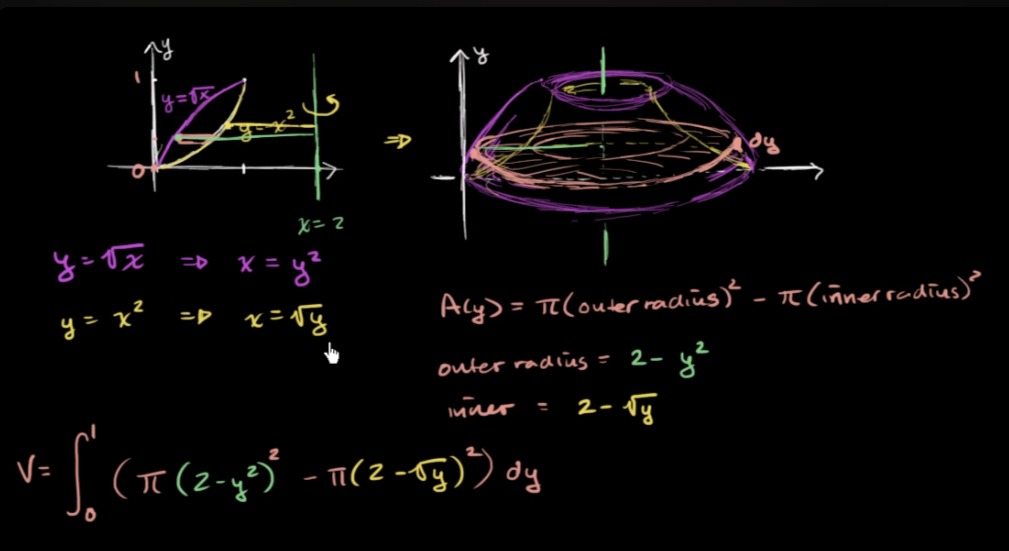 y
1
y = √x
y = x²
0
x = 2
⇒
y
dy
y = √x ⇒ x = y²
y = x² ⇒ x = √y
A(y) = π(outer radius)² - π(inner radius)²
outer radius = 2 - y²
inner = 2 - √y
V = ∫₀¹ (π(2-y²)² - π(2-√y)²) dy